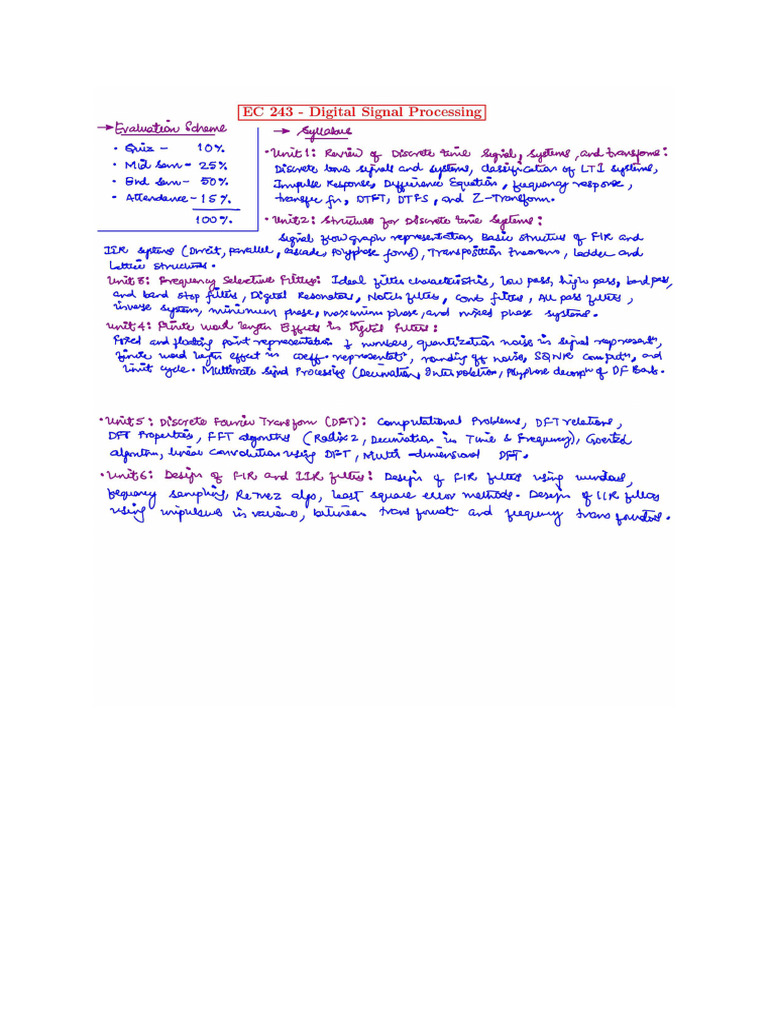 EC 243 - Digital Signal Processing
→ Evaluation Scheme
• Quiz - 10%
• Mid Sem - 25%
• End Sem - 50%
• Attendance - 15%
100%
→ Syllabus
• Unit 1: Review of Discrete time Signal, Systems, and transforms:
Discrete time signals and systems, classification of LTI systems,
Impulse Response, Difference Equation, frequency response,
transfer fn, DTFT, DTFS, and Z-Transform.
• Unit 2: Structures for Discrete time Systems:
Signal flow graph representation, Basic structures of FIR and
IIR systems (Direct, parallel, cascade, Polyphase forms), Transposition theorem, ladder and
Lattice Structures.
Unit 3: Frequency Selective Filters: Ideal filter characteristics, low pass, high pass, band pass,
and band stop filters, Digital Resonators, Notch filters, Comb filters, All pass filters,
inverse system, minimum phase, maximum phase, and mixed phase systems.
Unit 4: Finite Word length Effects in Digital Filters:
Fixed and floating point representation of numbers, quantization noise in signal represent^n,
finite word length effect in coeff. representat^n, rounding off noise, SQNR comput^n, and
limit cycle. Multirate Signal Processing (Decimation, Interpolation, Polyphase decomp^n of DF Bank.
• Unit 5: Discrete Fourier Transform (DFT): Computational Problems, DFT relations,
DFT Properties, FFT algorithms (Radix 2, Decimation in Time & Frequency), Goertzel
algorithm, linear Convolution using DFT, Multi-dimensional DFT.
• Unit 6: Design of FIR and IIR filters: Design of FIR filters using windows,
frequency sampling, Remez algo, least square error methods. Design of IIR filters
using impulse invariance, bilinear transformat^n and frequency transformations.